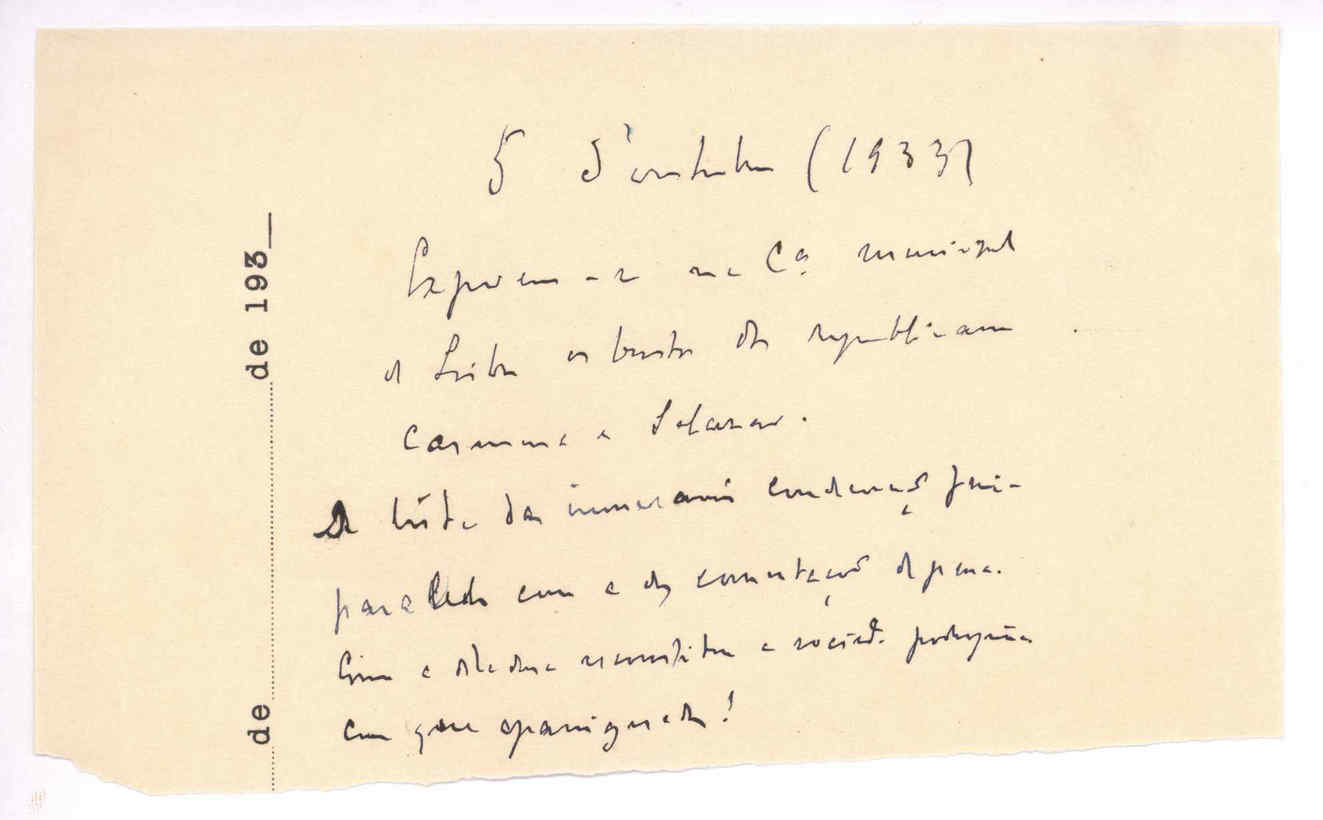 5 d'outubro (1933)
Expoem-se na Cª municipal
de Lisboa os bustos dos republicanos
Carmona e Salazar.
A lista das inumeraveis condenações foi
paralela com a das comutações de pena.
a ditadura reconstitue a socied.e portuguesa
com gente apaniguada!
de de 193_